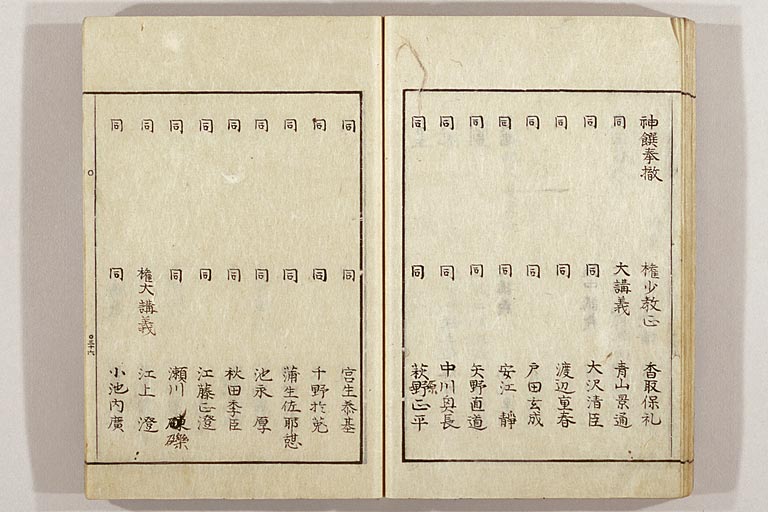 神饌奉撤 権少教正 香取保礼
同 大講義 青山景通
同 同 大沢清臣
同 同 渡辺重春
同 同 戸田玄成
同 同 安江静
同 同 矢野直道
同 同 中川奥長
同 同 萩原正平
同 同 宮生恭基
同 同 千野於菟
同 同 蒲生佐耶
同 同 池永厚
同 同 秋田季臣
同 同 江藤正澄
同 同 瀬川 礫
同 権大講義 江上澄
同 同 小池内廣